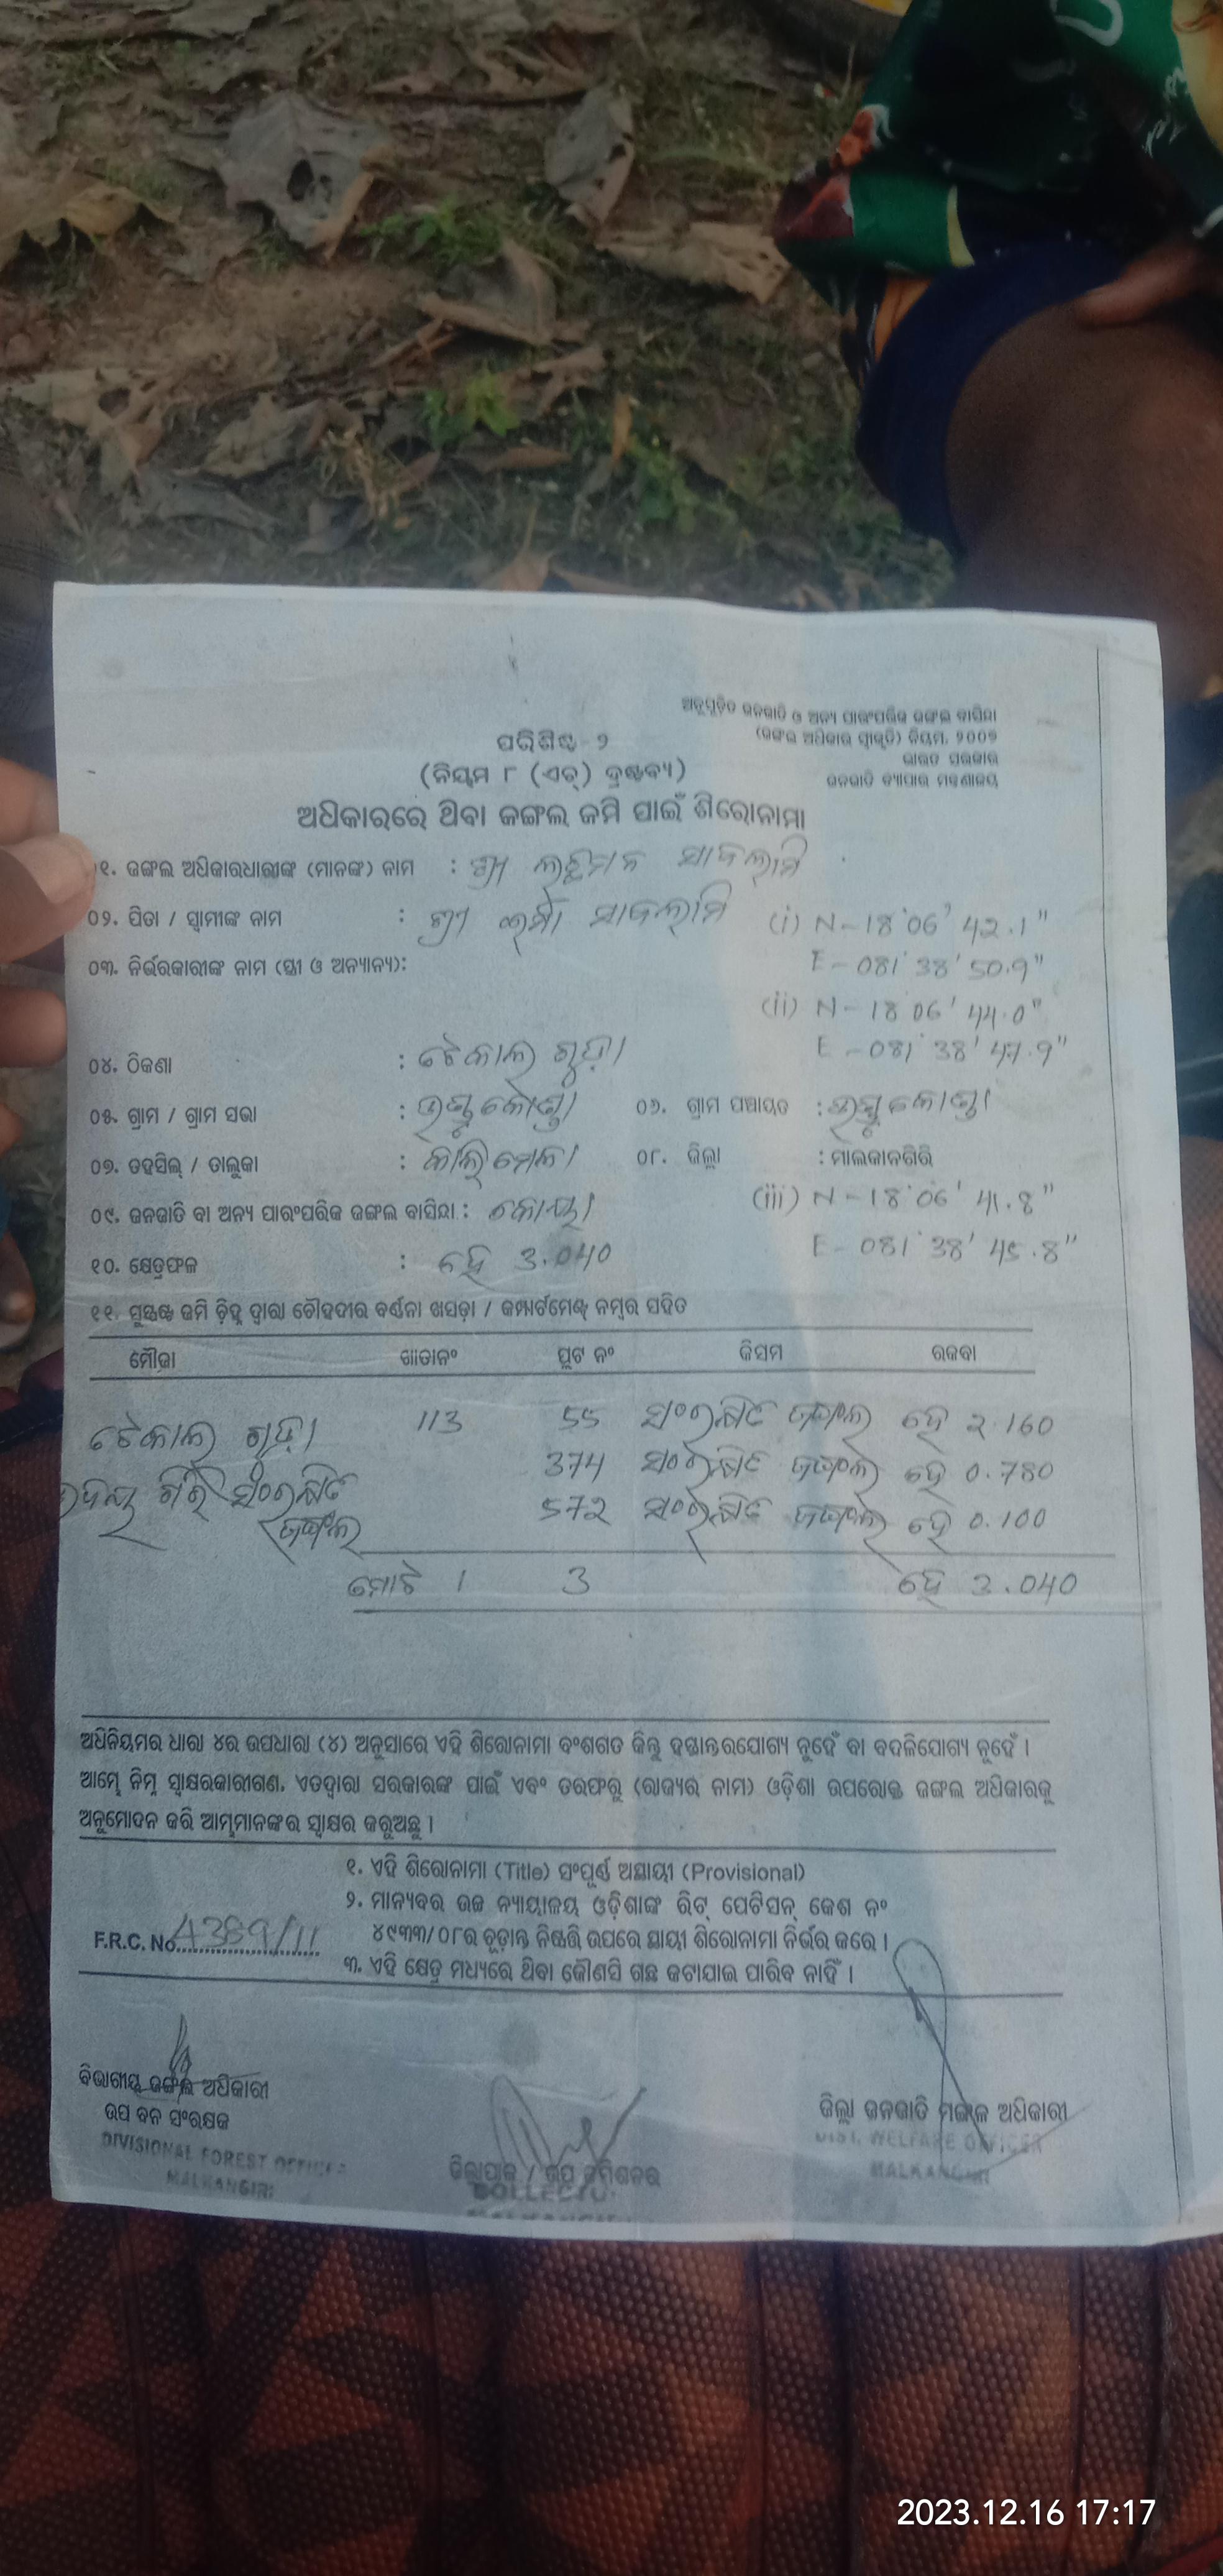 ଅନୁସୂଚିତ ଜନଜାତି ଓ ଅନ୍ୟ ପାରଂପରିକ ଜଙ୍ଗଲ ବାସିନ୍ଦା
(ଜଙ୍ଗଲ ଅଧିକାର ସ୍ୱୀକୃତି) ନିୟମ, ୨୦୦୭
ଭାରତ ସରକାର
ଜନଜାତି ବ୍ୟାପାର ମନ୍ତ୍ରଣାଳୟ
ପରିଶିଷ୍ଟ ୨
(ନିୟମ ୮ (ଏଚ୍) ଦ୍ରଷ୍ଟବ୍ୟ)
ଅଧିକାରରେ ଥିବା ଜଙ୍ଗଲ ଜମି ପାଇଁ ଶିରୋନାମା
୦୧. ଜଙ୍ଗଲ ଅଧିକାରଧାରୀଙ୍କ (ମାନଙ୍କ) ନାମ : ଶ୍ରୀ ଲଛମନ ମାଡକାମି
୦୨. ପିତା / ସ୍ୱାମୀଙ୍କ ନାମ : ଶ୍ରୀ ମାଡକାମି (i) N-18°06' 42.1"
୦୩. ନିର୍ଭରକାରୀଙ୍କ ନାମ (ସ୍ତ୍ରୀ ଓ ଅନ୍ୟାନ୍ୟ): E-081°38' 50.9"
(ii) N-18°06' 44.0"
୦୪. ଠିକଣା : ଟେକାଲ ଗୁଡ଼ା E-081°38' 47.9"
୦୫. ଗ୍ରାମ / ଗ୍ରାମ ସଭା : ୦୬. ଗ୍ରାମ ପଞ୍ଚାୟତ :
୦୭. ତହସିଲ୍ / ତାଲୁକା : କାଲିମେଳା ୦୮. ଜିଲ୍ଲା : ମାଲକାନଗିରି
(iii) N-18°06' 41.8"
୦୯. ଜନଜାତି ବା ଅନ୍ୟ ପାରଂପରିକ ଜଙ୍ଗଲ ବାସିନ୍ଦା : କୋୟା
୧୦. କ୍ଷେତ୍ରଫଳ : ହେ 3.040 E-081°38' 45.8"
୧୧. ସୁସ୍ପଷ୍ଟ ଜମି ଚିହ୍ନ ଦ୍ୱାରା ଚୌହଦୀର ବର୍ଣ୍ଣନା ଖସଡ଼ା / କମ୍ପାର୍ଟମେଣ୍ଟ ନମ୍ବର ସହିତ
ମୌଜା ଖାତାନଂ ପ୍ଲଟ ନଂ କିସମ ରକବା
ଟେକାଲ ଗୁଡ଼ା 113 55 ସଂରକ୍ଷିତ ଜଙ୍ଗଲ ହେ 2.160
374 ସଂରକ୍ଷିତ ଜଙ୍ଗଲ ହେ 0.780
ଗିରି ସଂରକ୍ଷିତ 572 ସଂରକ୍ଷିତ ଜଙ୍ଗଲ ହେ 0.100
ଜଙ୍ଗଲ
ମୋଟ 1 3 ହେ 3.040
ଅଧିନିୟମର ଧାରା ୪ର ଉପଧାରା (୪) ଅନୁସାରେ ଏହି ଶିରୋନାମା ବଂଶଗତ କିନ୍ତୁ ହସ୍ତାନ୍ତରଯୋଗ୍ୟ ନୁହେଁ ବା ବଦଳିଯୋଗ୍ୟ ନୁହେଁ ।
ଆମ୍ଭେ ନିମ୍ନ ସ୍ୱାକ୍ଷରକାରୀଗଣ, ଏତଦ୍ୱାରା ସରକାରଙ୍କ ପାଇଁ ଏବଂ ତରଫରୁ (ରାଜ୍ୟର ନାମ) ଓଡ଼ିଶା ଉପରୋକ୍ତ ଜଙ୍ଗଲ ଅଧିକାରକୁ
ଅନୁମୋଦନ କରି ଆମ୍ଭମାନଙ୍କର ସ୍ୱାକ୍ଷର କରୁଅଛୁ ।
୧. ଏହି ଶିରୋନାମା (Title) ସଂପୂର୍ଣ୍ଣ ଅସ୍ଥାୟୀ (Provisional)
୨. ମାନ୍ୟବର ଉଚ୍ଚ ନ୍ୟାୟାଳୟ ଓଡ଼ିଶାଙ୍କ ରିଟ୍ ପେଟିସନ୍ କେଶ ନଂ
F.R.C. No. 4389/11 ୪୯୩୩/୦୮ର ଚୂଡ଼ାନ୍ତ ନିଷ୍ପତ୍ତି ଉପରେ ସ୍ଥାୟୀ ଶିରୋନାମା ନିର୍ଭର କରେ ।
୩. ଏହି କ୍ଷେତ୍ର ମଧ୍ୟରେ ଥିବା କୌଣସି ଗଛ କଟାଯାଇ ପାରିବ ନାହିଁ ।
ବିଭାଗୀୟ ଜଙ୍ଗଲ ଅଧିକାରୀ
ଉପ ବନ ସଂରକ୍ଷକ
DIVISIONAL FOREST OFFICER
MALKANGIRI
ଜିଲ୍ଲାପାଳ / ଉପ କମିଶନର
COLLECTOR
MALKANGIRI
ଜିଲ୍ଲା ଜନଜାତି ମଙ୍ଗଳ ଅଧିକାରୀ
DIST. WELFARE OFFICER
MALKANGIRI
2023.12.16 17:17